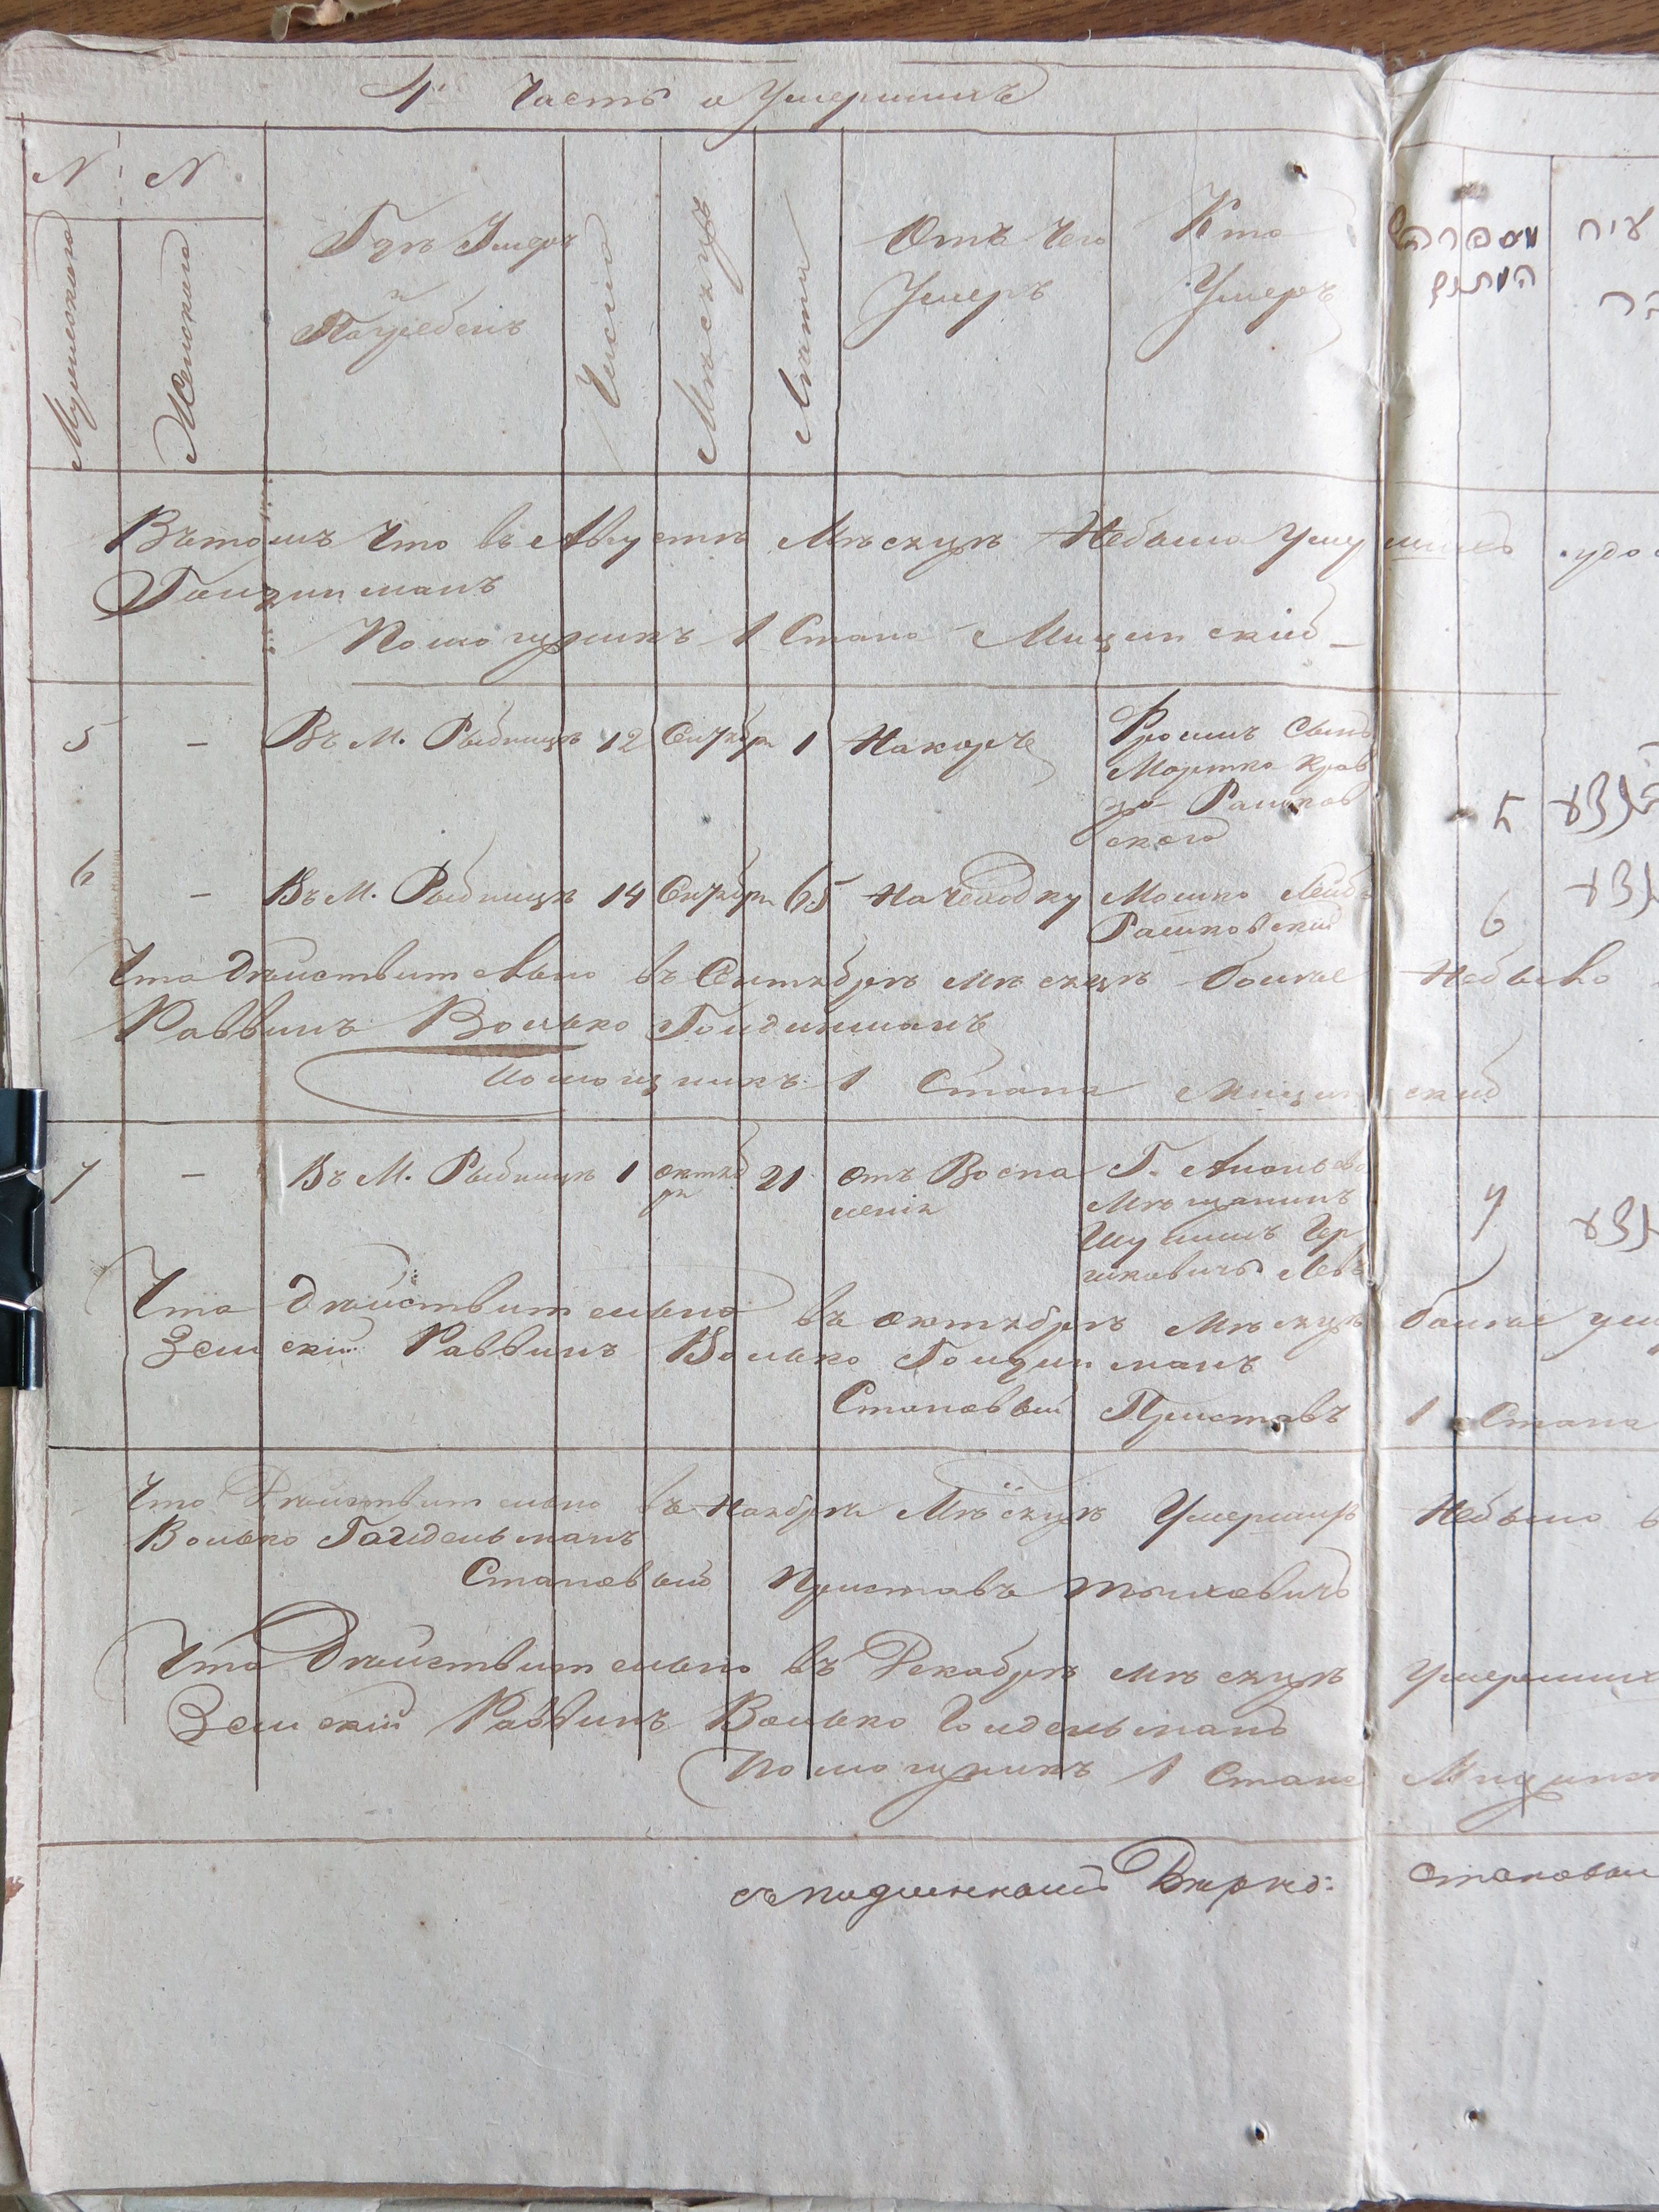 4. Часть о Умершихъ
N N
Мужескаго
Женскаго
Гдѣ Умеръ
и
Погребенъ
Число
Мѣсяцъ
Лѣта
Отъ Чего
Умеръ
Кто
Умеръ
מספר
Въ томъ Что въ Августѣ Мѣсяцѣ Небыло
Голдинманъ
Помощникъ 1 Стана Мицинскій
5 — Въ М. Рыбницѣ 12 Сентября 1 Накорче
Фроимъ Сынъ
Мортко Крав
ца Рашков
ского
6 — Въ М. Рыбницѣ 14 Сентября 65 Начеходку Мошко Лейб
Рашковскій
6
Что Дѣйствительно въ Сентябрѣ Мѣсяцѣ больше Небыло
Раввинъ Волько Голдинманъ
Помощникъ 1 Стана Мицинскій
7 — Въ М. Рыбницѣ 1 октяб 21 отъ Воспа Г. Ананьева
ря
ленія
Мѣщанинъ
Шулимъ Гер
шковичъ Левъ
7
Что Дѣйствительно въ октябрѣ Мѣсяцѣ больше
Земскій Раввинъ Волько Голдинманъ
Становый Приставъ 1 Стана
Что Дѣйствительно въ Ноября Мѣсяцѣ Умершихъ Небыло
Волько Голдельманъ
Становый Приставъ
Что Дѣйствительно въ Декабрѣ мѣсяцѣ Умерших
Земскій Раввинъ Волько Голдельманъ
Помощникъ 1 Стана
съ подлиннымъ Вѣрно: становый